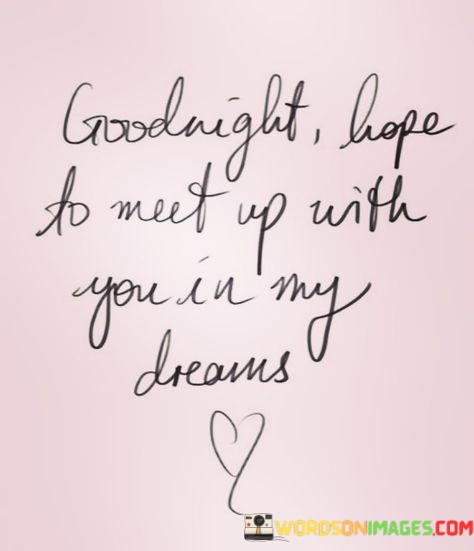 Goodnight, hope
to meet up with
you in my
dreams
WORDSONIMAGES.COM